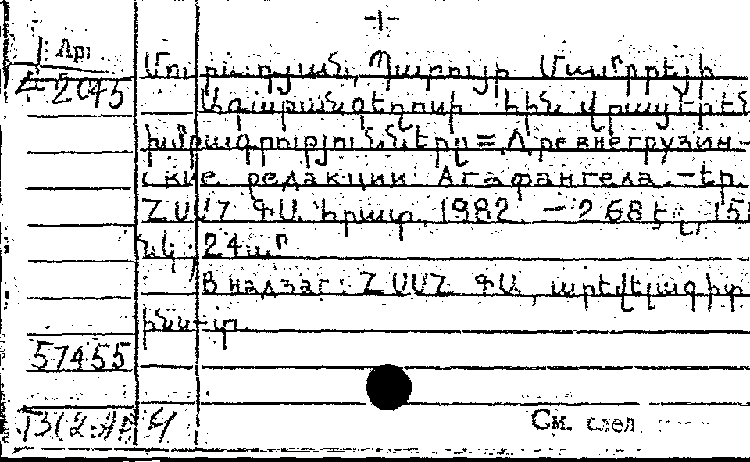 -1-
Арм
2-2045
Մուրադյան, Պարույր Մամբրեյի
Ագաթանգեղոսի հին վրացերեն
խմբագրություններ = Древнегрузин-
ские редакции Агафангела. - Եր.
ՀՍՍՀ ԳԱ հրատ. 1982. - 268 էջ,
նկ; 24սմ
В надзаг: ՀՍՍՀ ԳԱ, արևելագիտ
ինս-տ.
57455
См. след